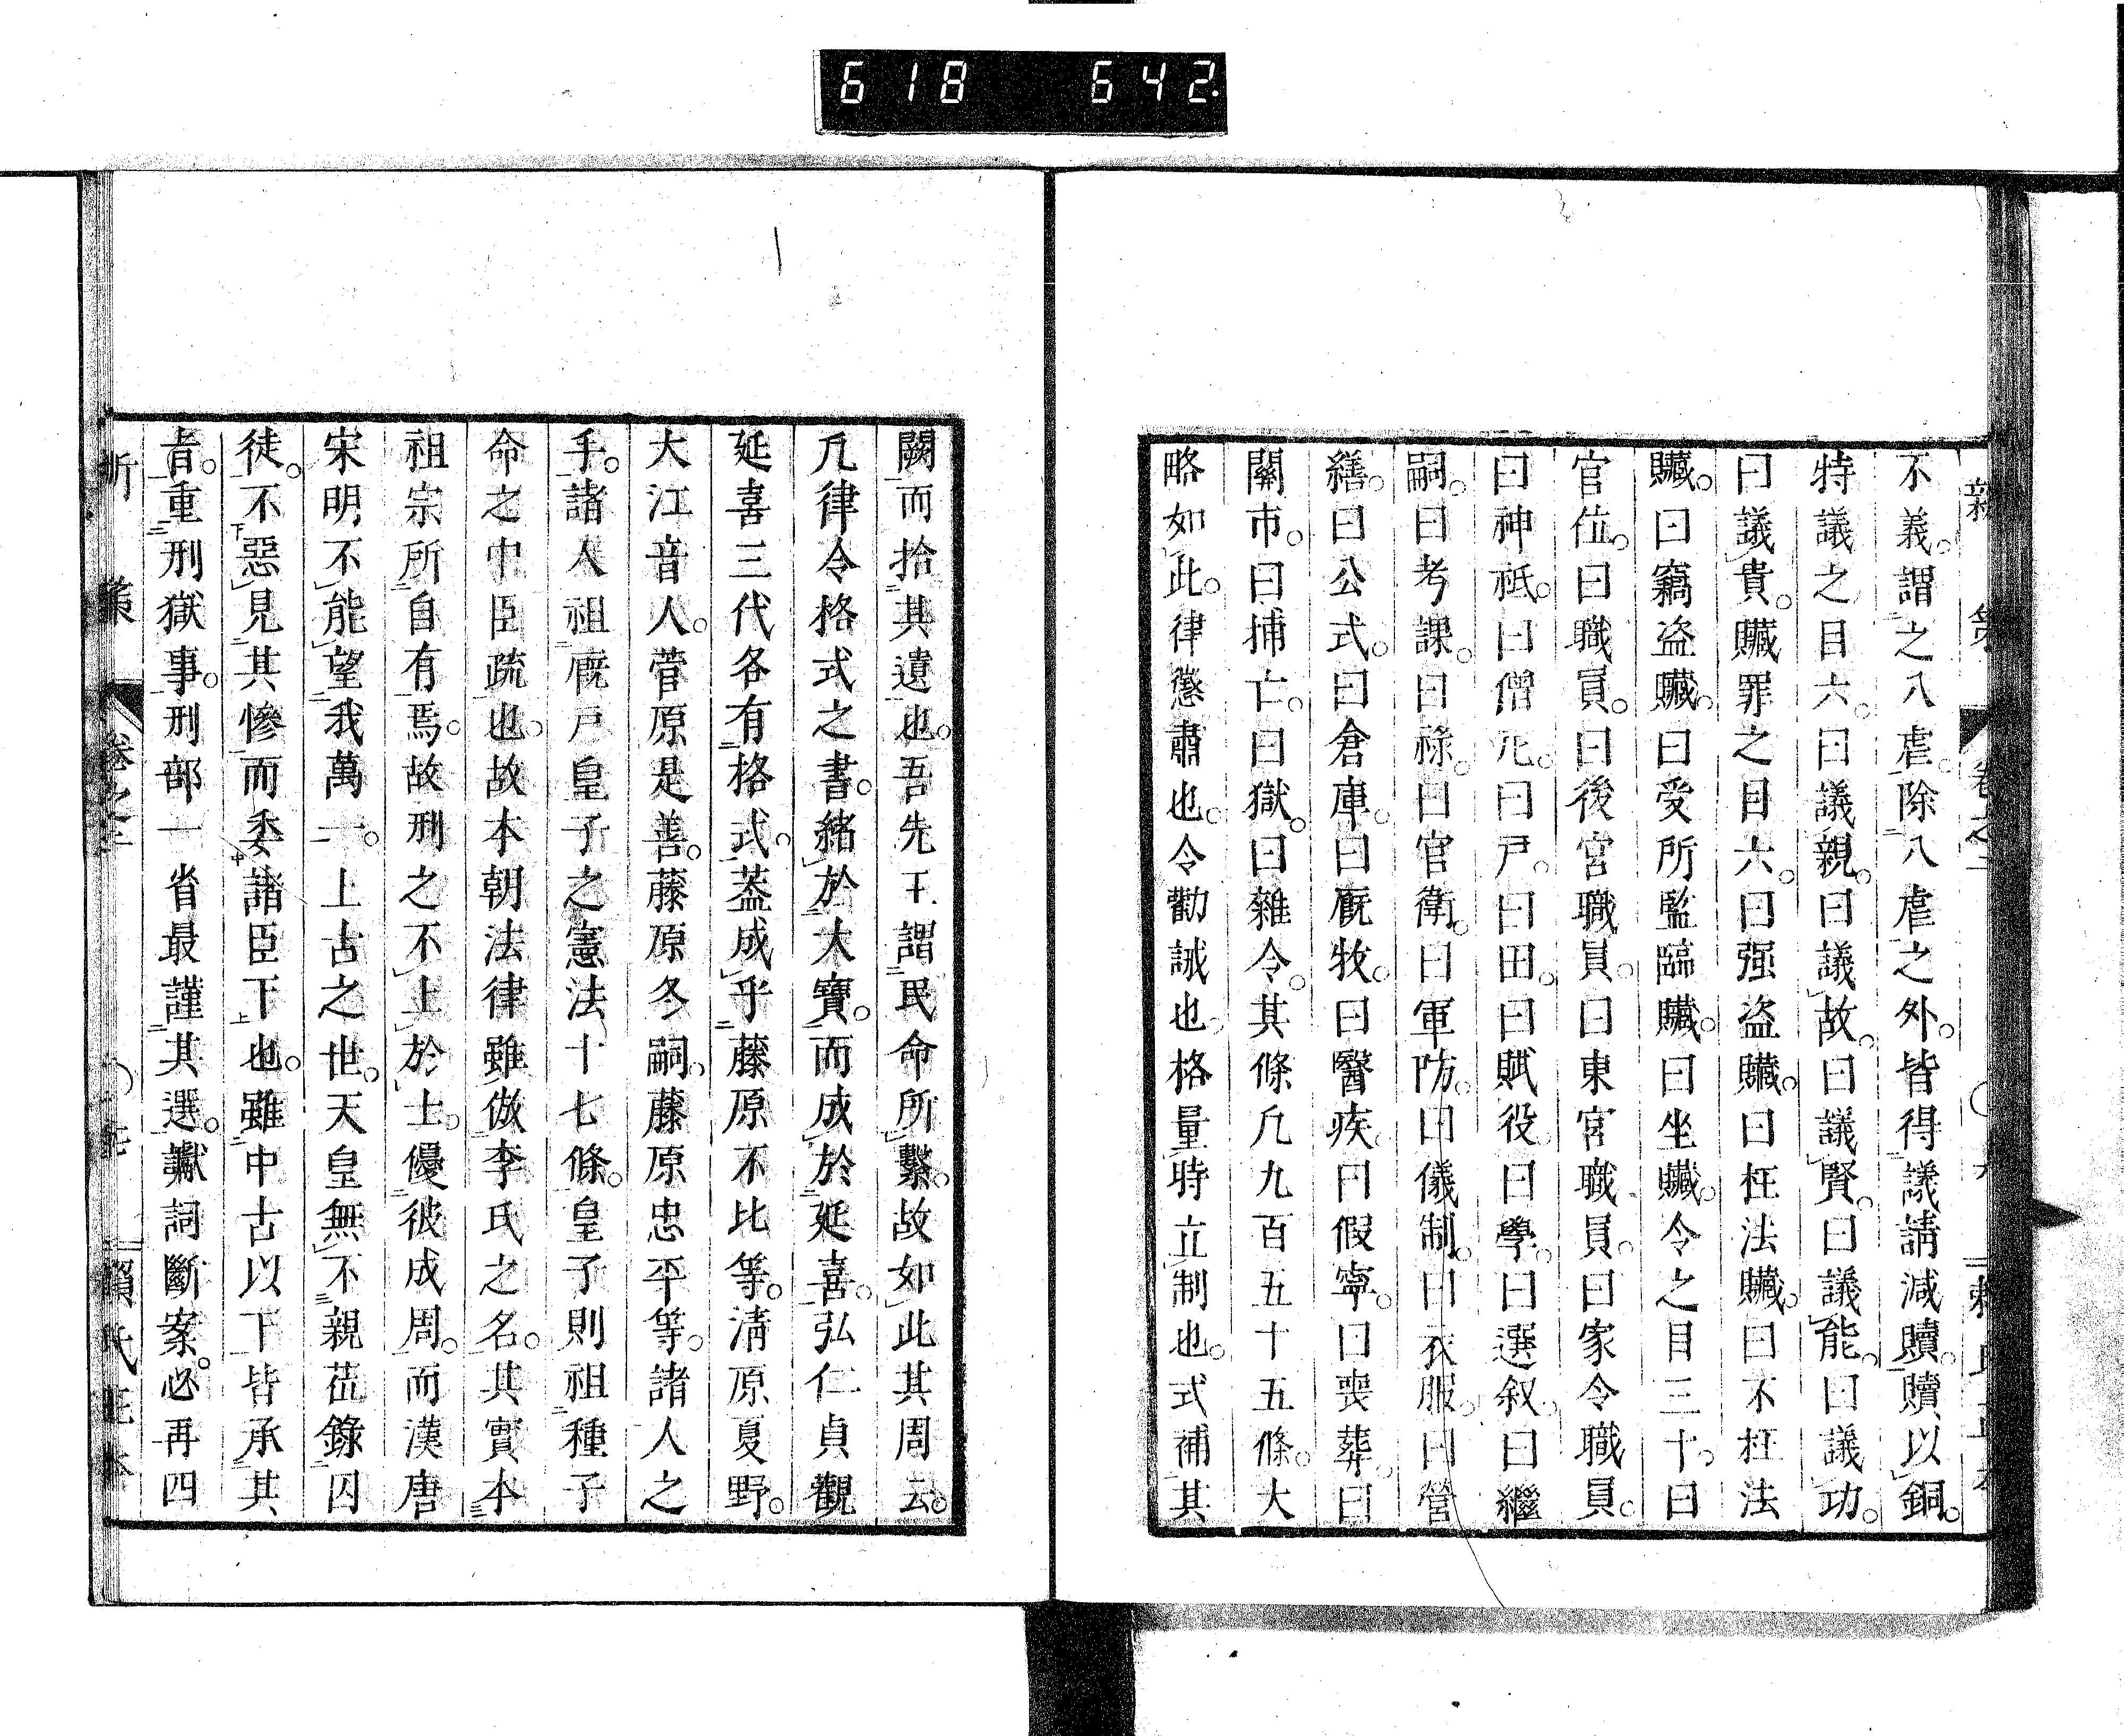 618 642
不義。謂之八虐。除八虐之外。皆得議請減贖。贖以銅。
特議之目六。曰議親。曰議故。曰議賢。曰議能。曰議功。
曰議貴。贓罪之目六。曰强盜贓。曰枉法贓。曰不枉法
贓。曰竊盜贓。曰受所監臨贓。曰坐贓。令之目三十。曰
官位。曰職員。曰後宮職員。曰東宮職員。曰家令職員。
曰神祇。曰僧尼。曰戸。曰田。曰賦役。曰學。曰選叙。曰繼
嗣。曰考課。曰祿。曰官衛。曰軍防。曰儀制。曰衣服。曰營
繕。曰公式。曰倉庫。曰厩牧。曰醫疾。曰假寧。曰喪葬。曰
關市。曰捕亡。曰獄。曰雜令。其條凡九百五十五條。大
略如此。律懲肅也。令勸誡也。格量時立制也。式補其
闕而拾其遺也。吾先王謂民命所繫。故如此其周云。
凡律令格式之書。緒於大寶。而成於延喜。弘仁貞觀
延喜三代各有格式。蓋成乎藤原不比等。淸原夏野。
大江音人。菅原是善。藤原冬嗣。藤原忠平等。諸人之
手。諸人祖厩戸皇子之憲法十七條。皇子則祖種子
命之中臣疏也。故本朝法律雖倣李氏之名。其實本
祖宗所自有焉。故刑之不上於士。優彼成周。而漢唐
宋明不能望我萬一。上古之世。天皇無不親莅錄囚
徒。不惡見其慘而委諸臣下也。雖中古以下皆承其
旨。重刑獄事。刑部一省最謹其選。讞詞斷案。必再四
新策 卷之二 賴氏正本